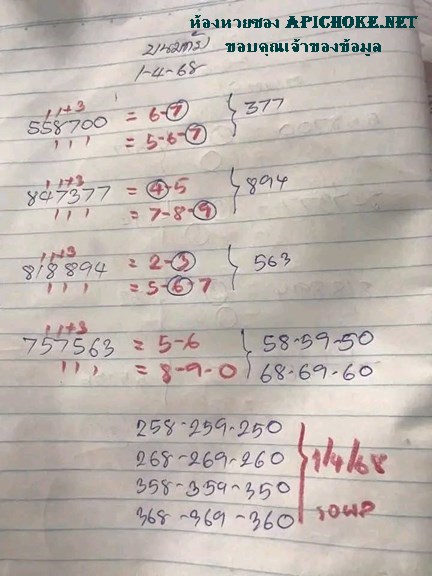 ห้องหวยซอง APICHOKE.NET
ขอบคุณเจ้าของข้อมูล
1-4-68
1 1+3
558700 = 6-7 } 377
1 1 1 = 5-6-7
1 1+3
847377 = 4-5 } 894
1 1 1 = 7-8-9
1 1+3
818894 = 2-3 } 563
1 1 1 = 5-6 7
1 1+3
757563 = 5-6 } 58-59-50
1 1 1 = 8-9-0 68-69-60
258-259-250
268-269-260 } 1/4/68
358-359-350
368-369-360